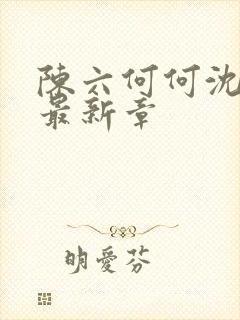 陳六何何沈
最新章
明愛芬